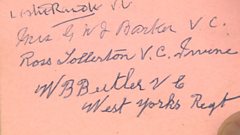 V C
Mrs G W J Barker V C.
Ross Tollerton V.C. Irvine
W B Butler V C
West Yorks Regt